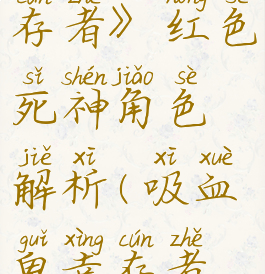 存者》 红色
sǐ shén jiǎo sè
死神角色
jiě xī xī xuè
解析(吸血
guǐ xìng cún zhě
鬼幸存者